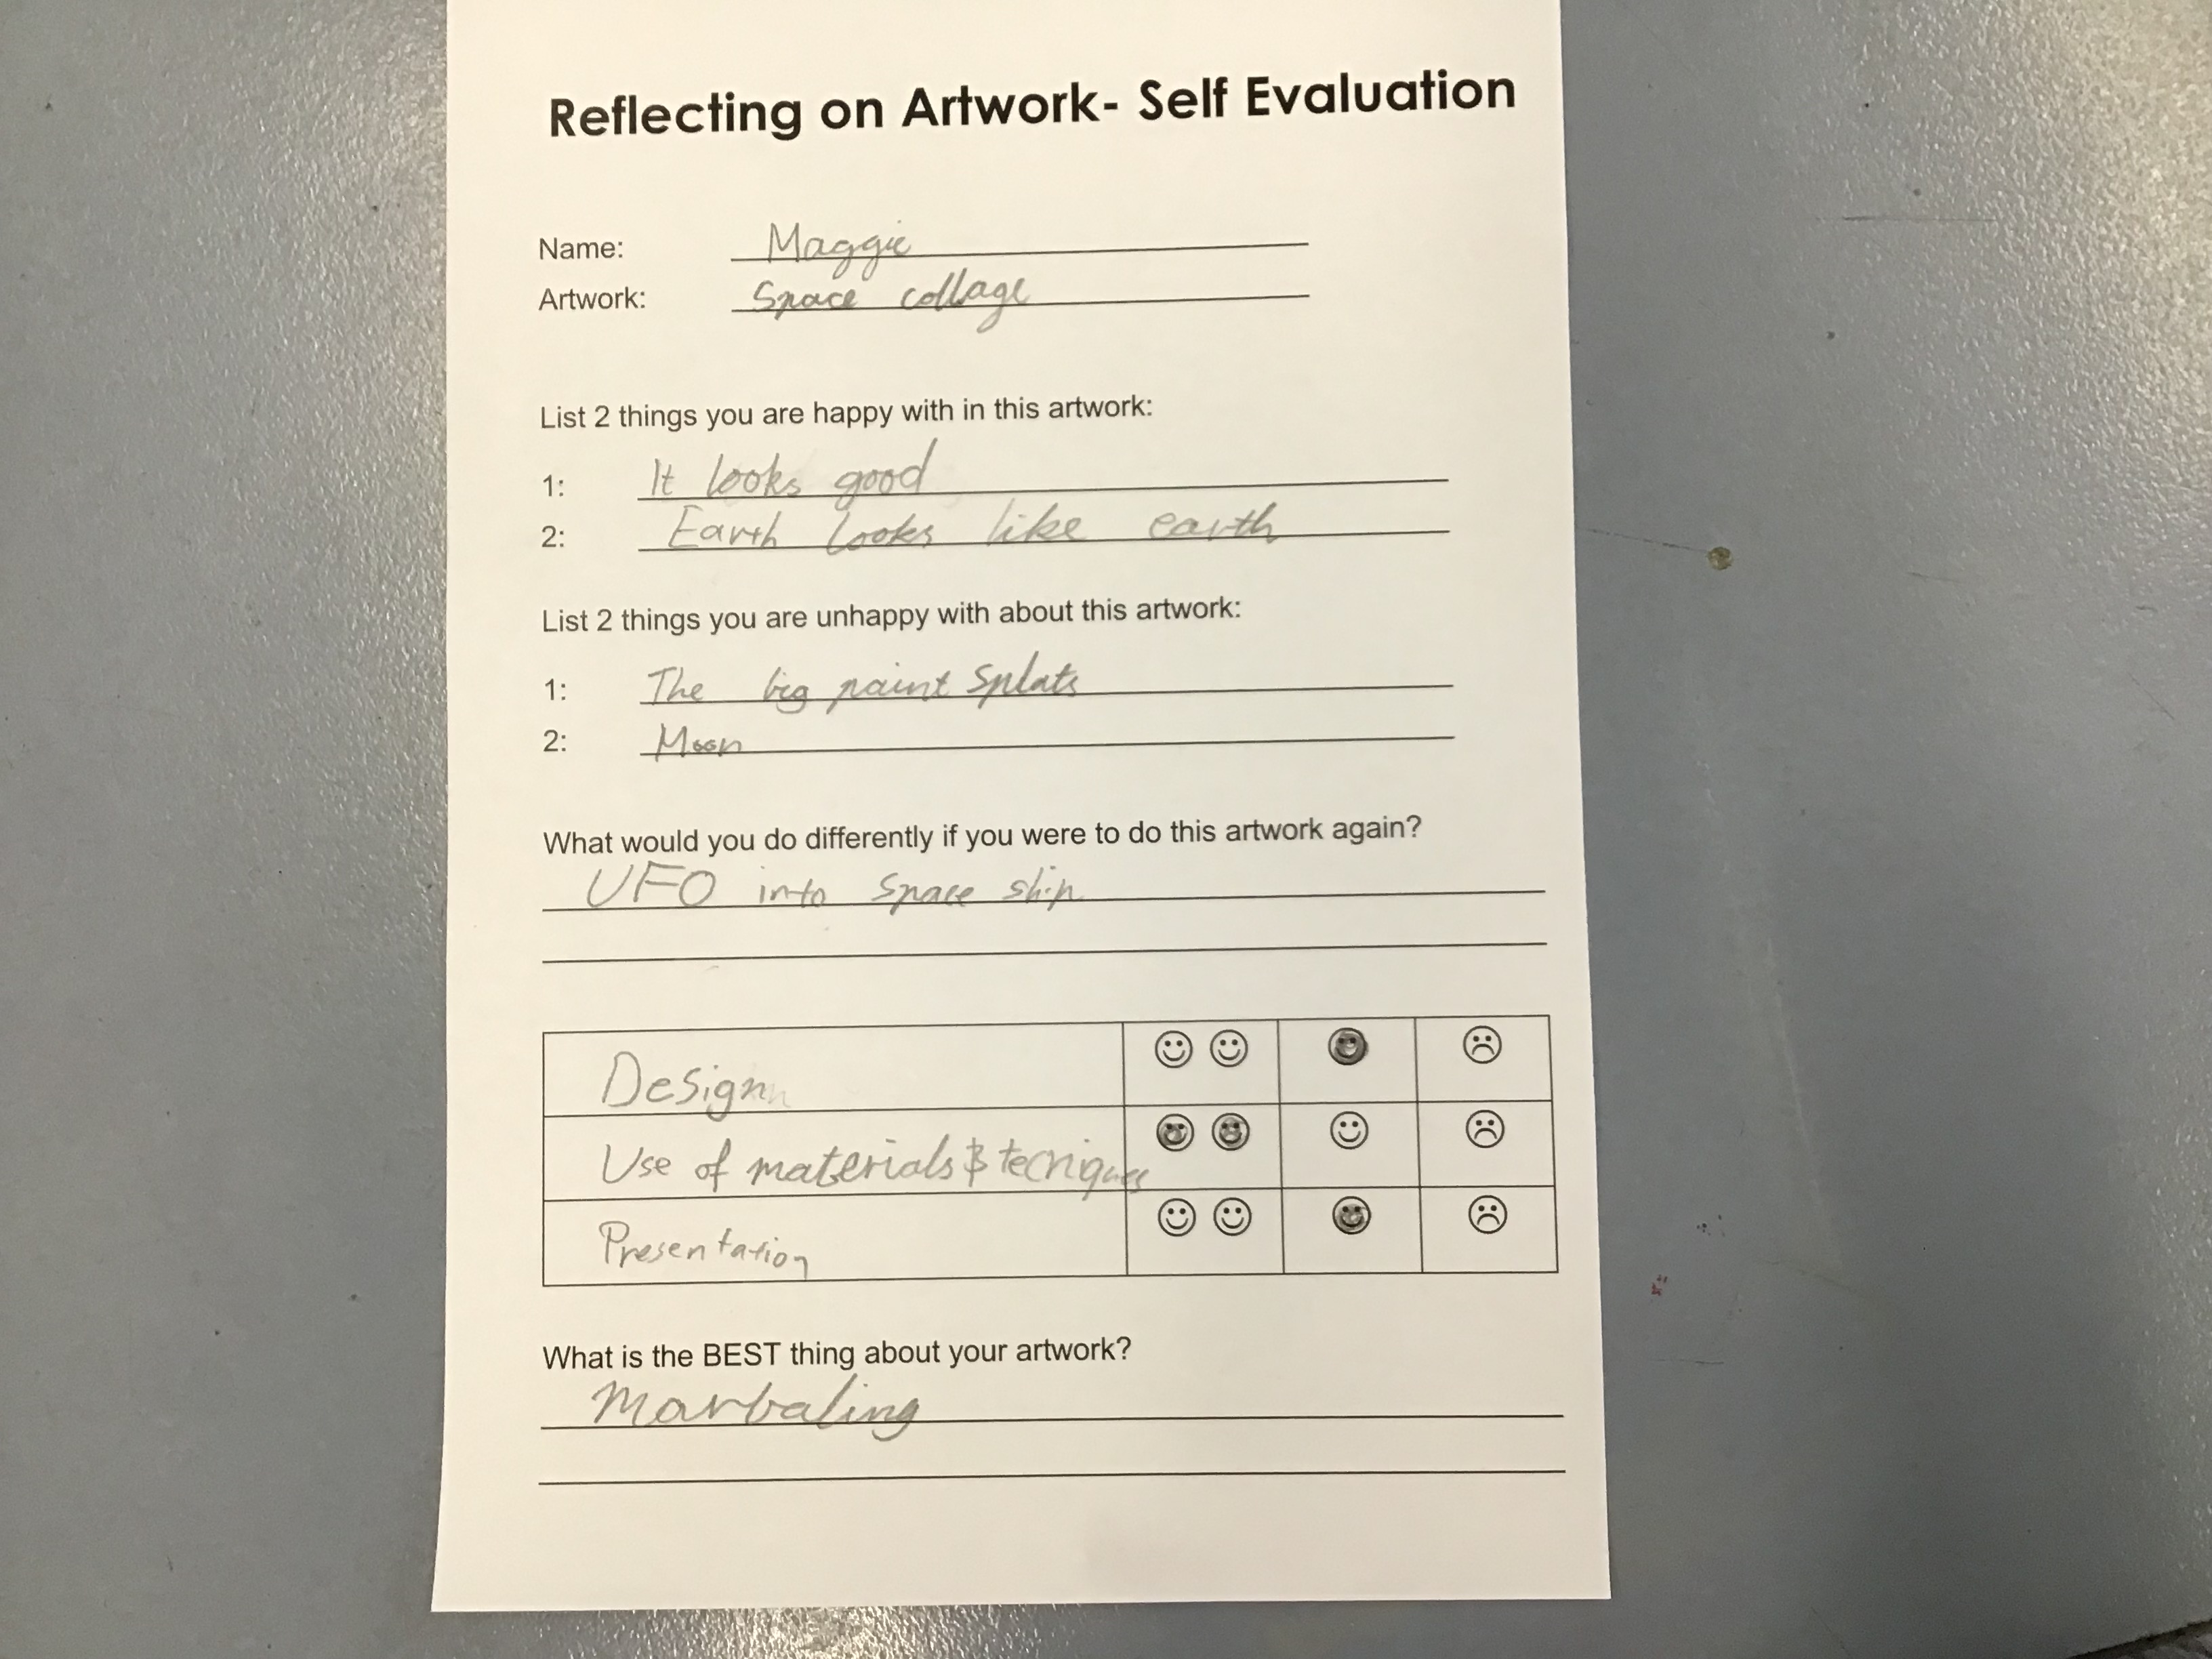 Reflecting on Artwork- Self Evaluation
Name: Maggie
Artwork: Space collage
List 2 things you are happy with in this artwork:
1: It looks good
2: Earth looks like earth
List 2 things you are unhappy with about this artwork:
1: The big paint splats
2: Moon
What would you do differently if you were to do this artwork again?
UFO into space ship
Design
Use of materials & tecniques
Presentation
What is the BEST thing about your artwork?
Marbaling